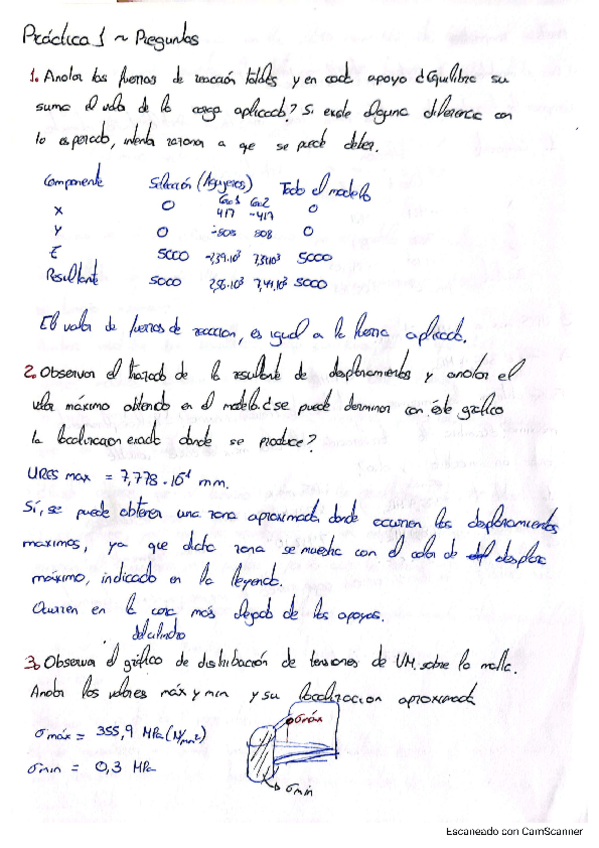 Práctica 1 ~ Preguntas
1. Anotar las fuerzas de reacción totales y en cada apoyo ¿Equilibra su
suma el valor de la carga aplicada? Si existe alguna diferencia con
lo esperado, intenta razonar a que se puede deber.
Componente Selección (Agujeros) Todo el modelo
Cas1 Cas2
X 0 417 -417 0
Y 0 -808 808 0
Z 5000 -2,39·10³ 7,39·10³ 5000
Resultante 5000 7,44·10³ 5000
El valor de fuerzas de reaccion, es igual a la fuerza aplicada.
2. Observar el trazado de la resultante de desplazamientos y anotar el
valor máximo obtenido en el modelo. ¿Se puede determinar con éste gráfico
la localizacion exacta donde se produce?
URES max = 7,778 · 10⁻¹ mm.
Sí, se puede obtener una zona aproximada donde ocurren los desplazamientos
maximos, ya que dicha zona se muestra con el color de desplaz
máximo, indicado en la leyenda.
Ocurren en la cara más alejada de los apoyos.
del cilindro
3. Observa el gráfico de distribución de tensiones de VM. sobre la malla.
Anota los valores máx y min y su localizacion aproximada
σmáx = 355,9 MPa (N/mm²)
σmáx
σmin = 0,3 MPa
σmin
Escaneado con CamScanner